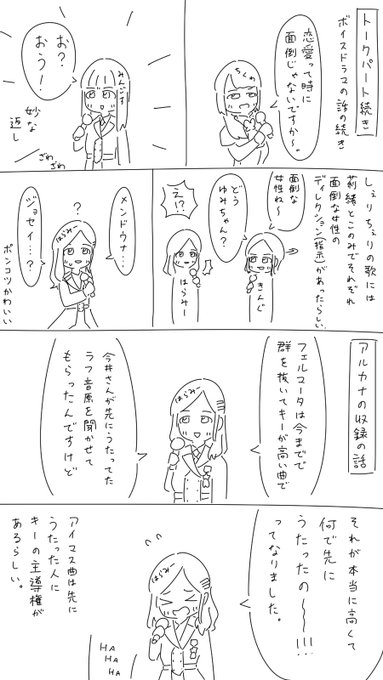 トークパート続き
ボイスドラマの話の続き
恋愛って時に
面倒じゃないですか〜。
ちくの
みんごす
お？
おう！
妙な
返し
ざわ
ざわ
しぇりちぇりの歌には
莉緒とこのみでそれぞれ
面倒な女性の
ディレクション(指示)があったらしい。
面倒な
女性ね〜
どう
ゆみちゃん？
きんぐ
え!?
はらみー
メンドウナ…
ジョセイ…？
？
はらみー
ポンコツかわいい
アルカナの収録の話
フェルマータは今までで
群を抜いてキーが高い曲で
はらみー
今井さんが先にうたってた
ラフ音源を聞かせて
もらったんですけど
それが本当に高くて
何で先に
うたったの〜〜!!!
ってなりました。
はらみー
HA
HA
HA
アイマス曲は先に
うたった人に
キーの主導権が
あるらしい。